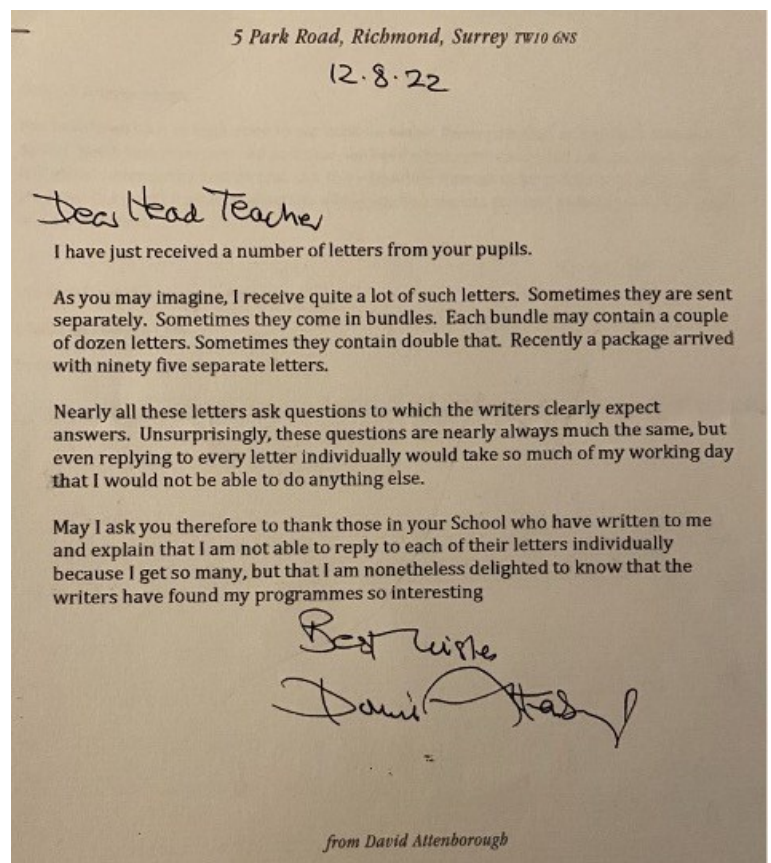 5 Park Road, Richmond, Surrey TW10 6NS
12.8.22
Dear Head Teacher
I have just received a number of letters from your pupils.
As you may imagine, I receive quite a lot of such letters. Sometimes they are sent
separately. Sometimes they come in bundles. Each bundle may contain a couple
of dozen letters. Sometimes they contain double that. Recently a package arrived
with ninety five separate letters.
Nearly all these letters ask questions to which the writers clearly expect
answers. Unsurprisingly, these questions are nearly always much the same, but
even replying to every letter individually would take so much of my working day
that I would not be able to do anything else.
May I ask you therefore to thank those in your School who have written to me
and explain that I am not able to reply to each of their letters individually
because I get so many, but that I am nonetheless delighted to know that the
writers have found my programmes so interesting
Best wishes
David Attenborough
from David Attenborough